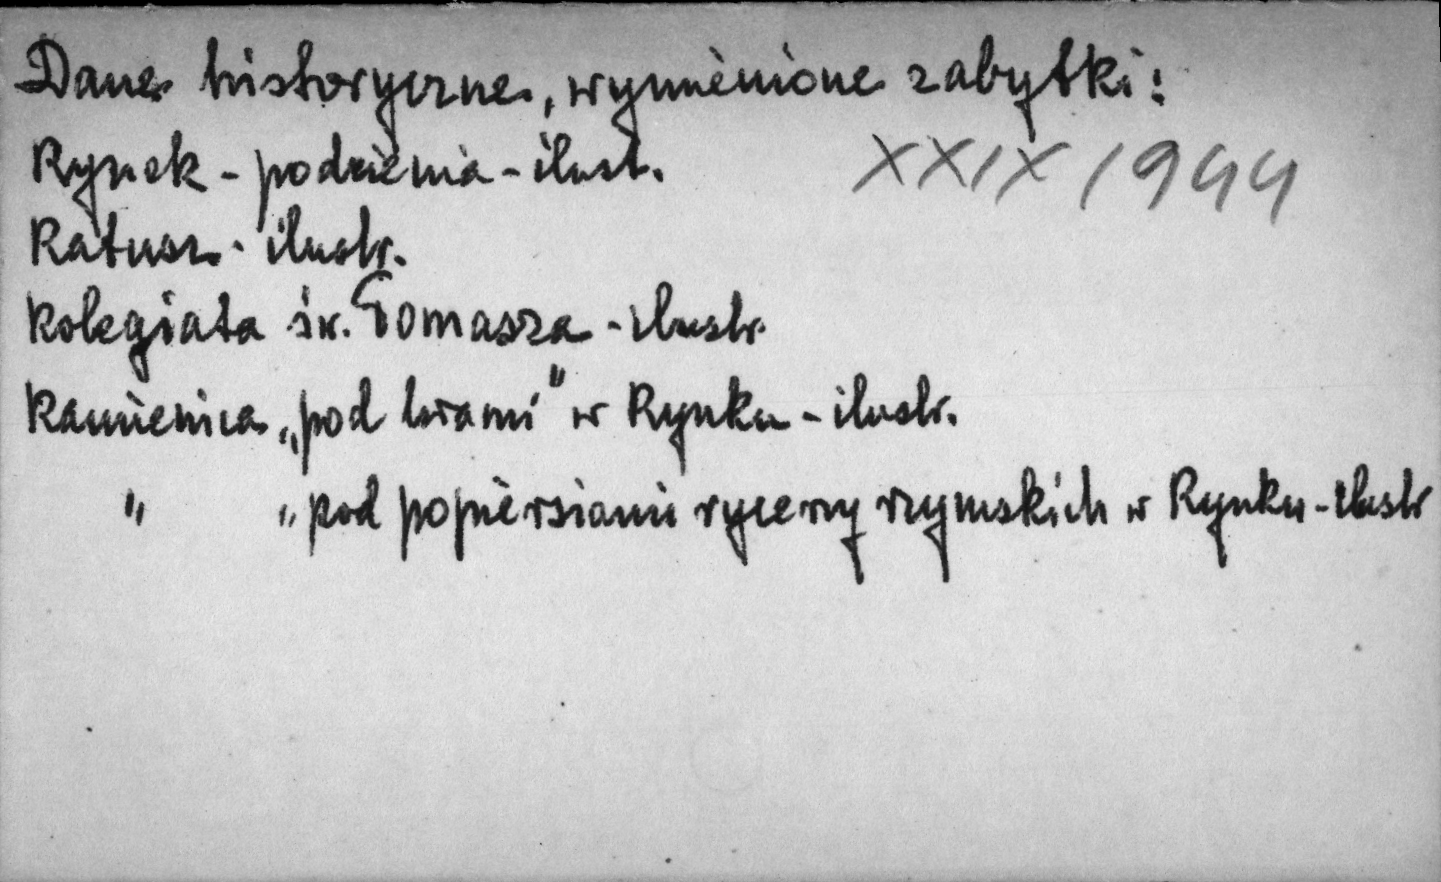 Dane historyczne, wymienione zabytki:
Rynek - podzienia - ilust.
XXIX/1944
Ratusz - ilustr.
Kolegiata św. Tomasza - ilustr.
Kamienica „pod lwami" w Rynku - ilustr.
" „pod popiersiami rycerzy rzymskich w Rynku - ilustr